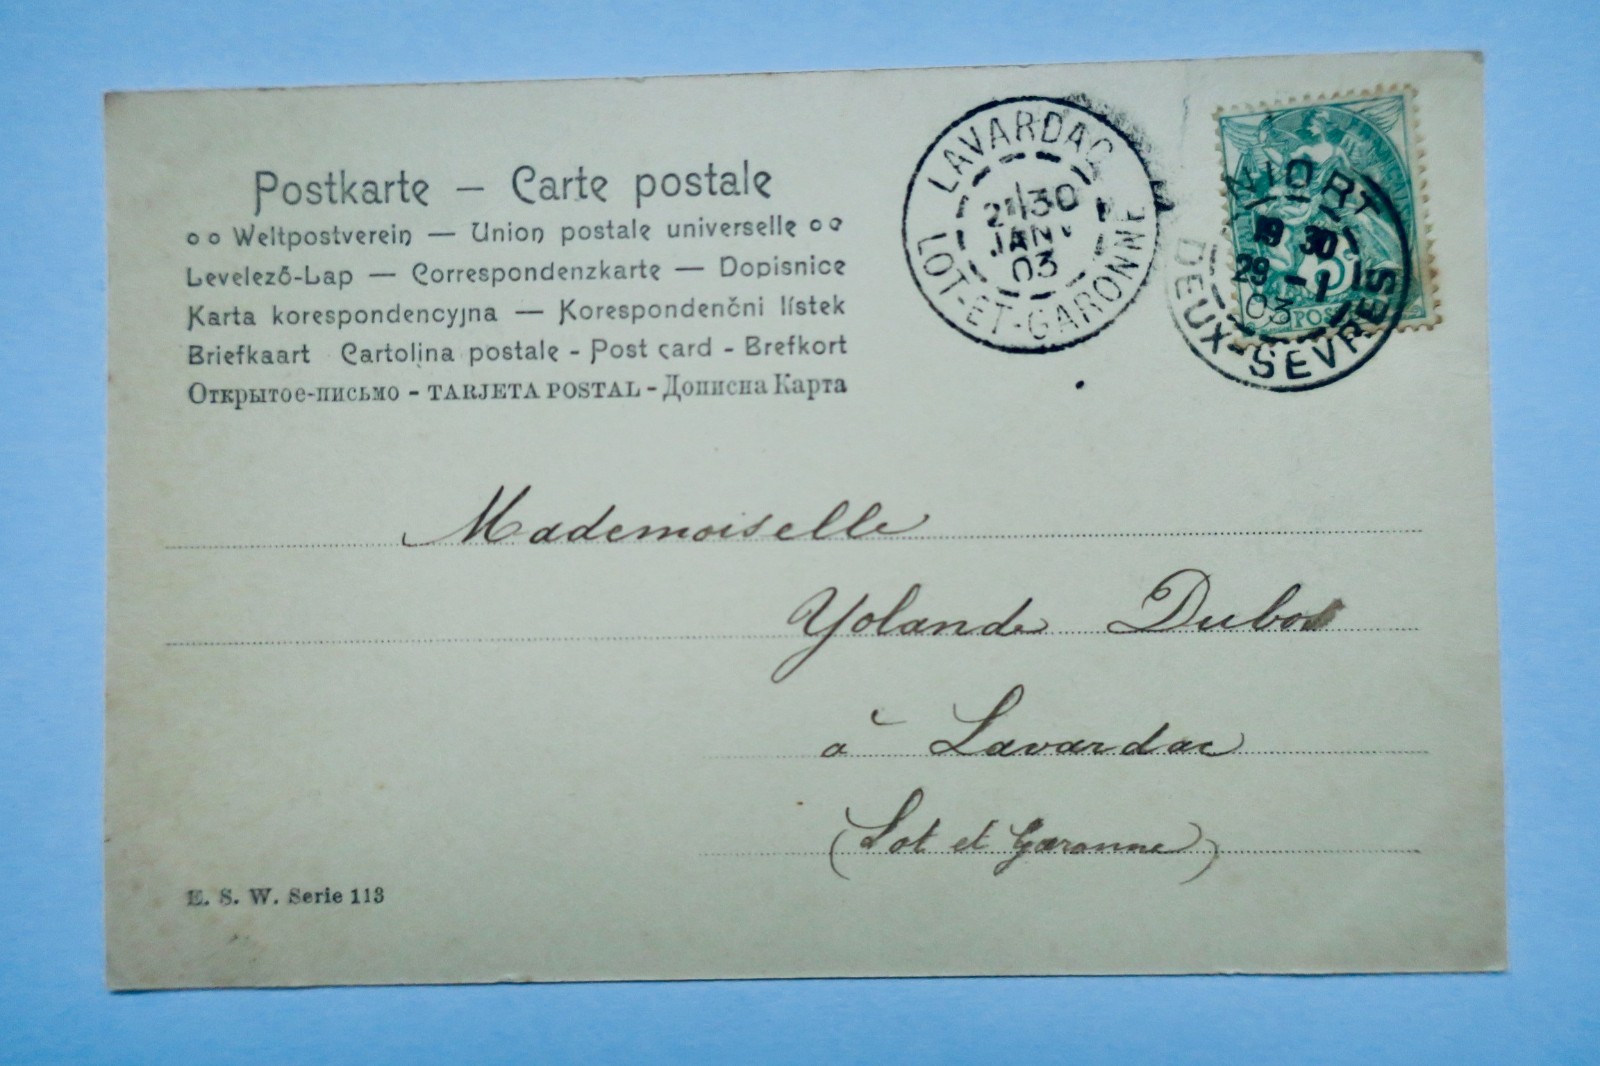 Postkarte — Carte postale
Weltpostverein — Union postale universelle
Levelező-Lap — Correspondenzkarte — Dopisnice
Karta korespondencyjna — Korespondenční lístek
Briefkaart Cartolina postale - Post card - Brefkort
Открытое-письмо - TARJETA POSTAL - Дописна Карта
LAVARDAC
30
JANV
03
LOT-ET-GARONNE
NIORT
19 30
29 - 1
03
DEUX-SEVRES
5
POSTES
Mademoiselle
Yolande Dubos
à Lavardac
(Lot et Garonne)
E. S. W. Serie 113